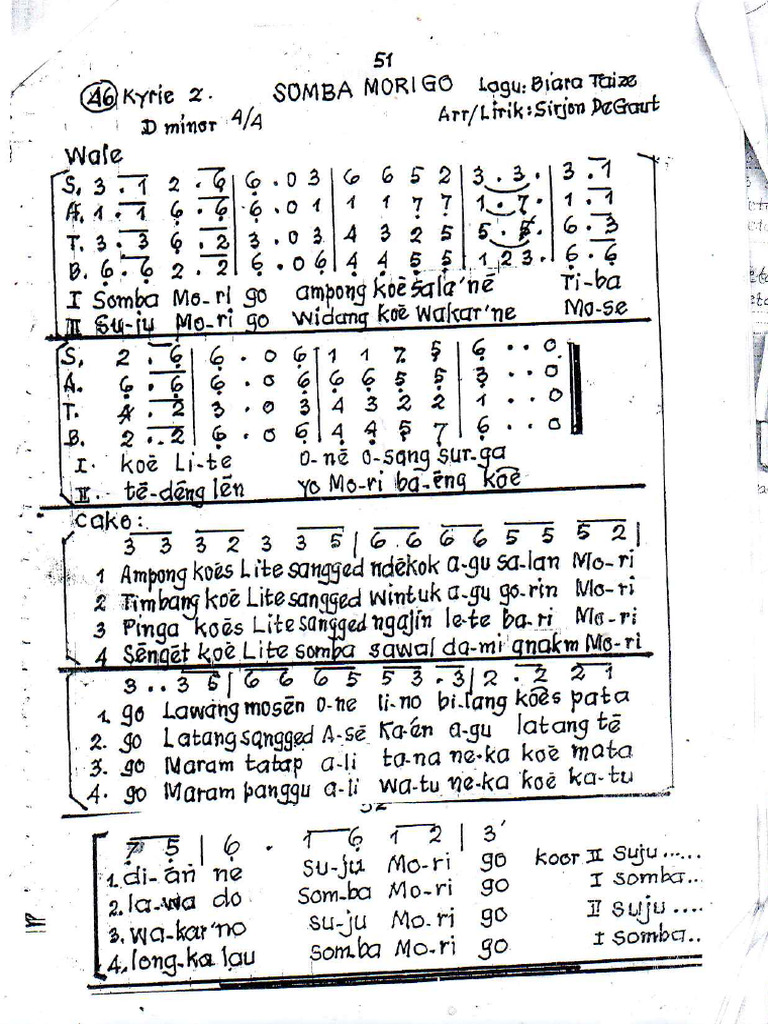 51
46 Kyrie 2. SOMBA MORI GO Lagu: Biara Taize
D minor 4/4 Arr/Lirik: Sirjon DeGaut
Wale
S. 3 . 1 2 . 6 | 6 . 0 3 | 6 6 5 2 | 3 . 3 . | 3 . 1
A. 1 . 1 6 . 6 | 6 . 0 1 | 1 1 7 7 | 1 . 7 . | 1 . 1
T. 3 . 3 6 . 2 | 3 . 0 3 | 4 3 2 5 | 5 . 5 . | 6 . 3
B. 6 . 6 2 . 2 | 6 . 0 6 | 4 4 5 5 | 1 2 3 . | 6 . 6
I Somba Mo-ri go ampong koē sala'nē Ti-ba
II Su-ju Mo-ri go widang koē wakar'ne Mo-se
S. 2 . 6 | 6 . 0 6 | 1 1 7 5 | 6 . . 0
A. 6 . 6 | 6 . 0 6 | 6 6 5 5 | 3 . . 0
T. 4 . 2 | 3 . 0 3 | 4 3 2 2 | 1 . . 0
B. 2 . . 2 | 6 . 0 6 | 4 4 5 7 | 6 . . 0
I. koē Li-te o-nē o-sang sur-ga
II tē-dēng lēn yo Mo-ri ba-ēng koē
Cako:
3 3 3 2 3 3 5 | 6 6 6 6 5 5 5 2 |
1 Ampong koēs Lite sangged ndēkok a-gu sa-lan Mo-ri
2 Timbang koē Lite sangged wintuk a-gu go-rin Mo-ri
3 Pinga koēs Lite sangged ngajin le-te ba-ri Mo-ri
4 Sēngēt koē Lite somba sawal da-mi anakm Mo-ri
3 . . 3 5 | 6 6 6 5 5 3 . 3 | 2 . 2 2 1
1. go Lawang mosēn o-ne li-no bi-lang koēs pata
2. go Latang sangged A-sē Ka-én a-gu latang tē
3. go Maram tatap a-li ta-na ne-ka koē mata
4. go Maram panggu a-li wa-tu ne-ka koē ka-tu
7 5 | 6 . 1 6 1 2 | 3'
1. di-an ne su-ju Mo-ri go koor II Suju.....
2. la-wa do Som-ba Mo-ri go I somba...
3. wa-kar'no su-ju Mo-ri go II suju....
4. long-ka lau somba Mo-ri go I somba..